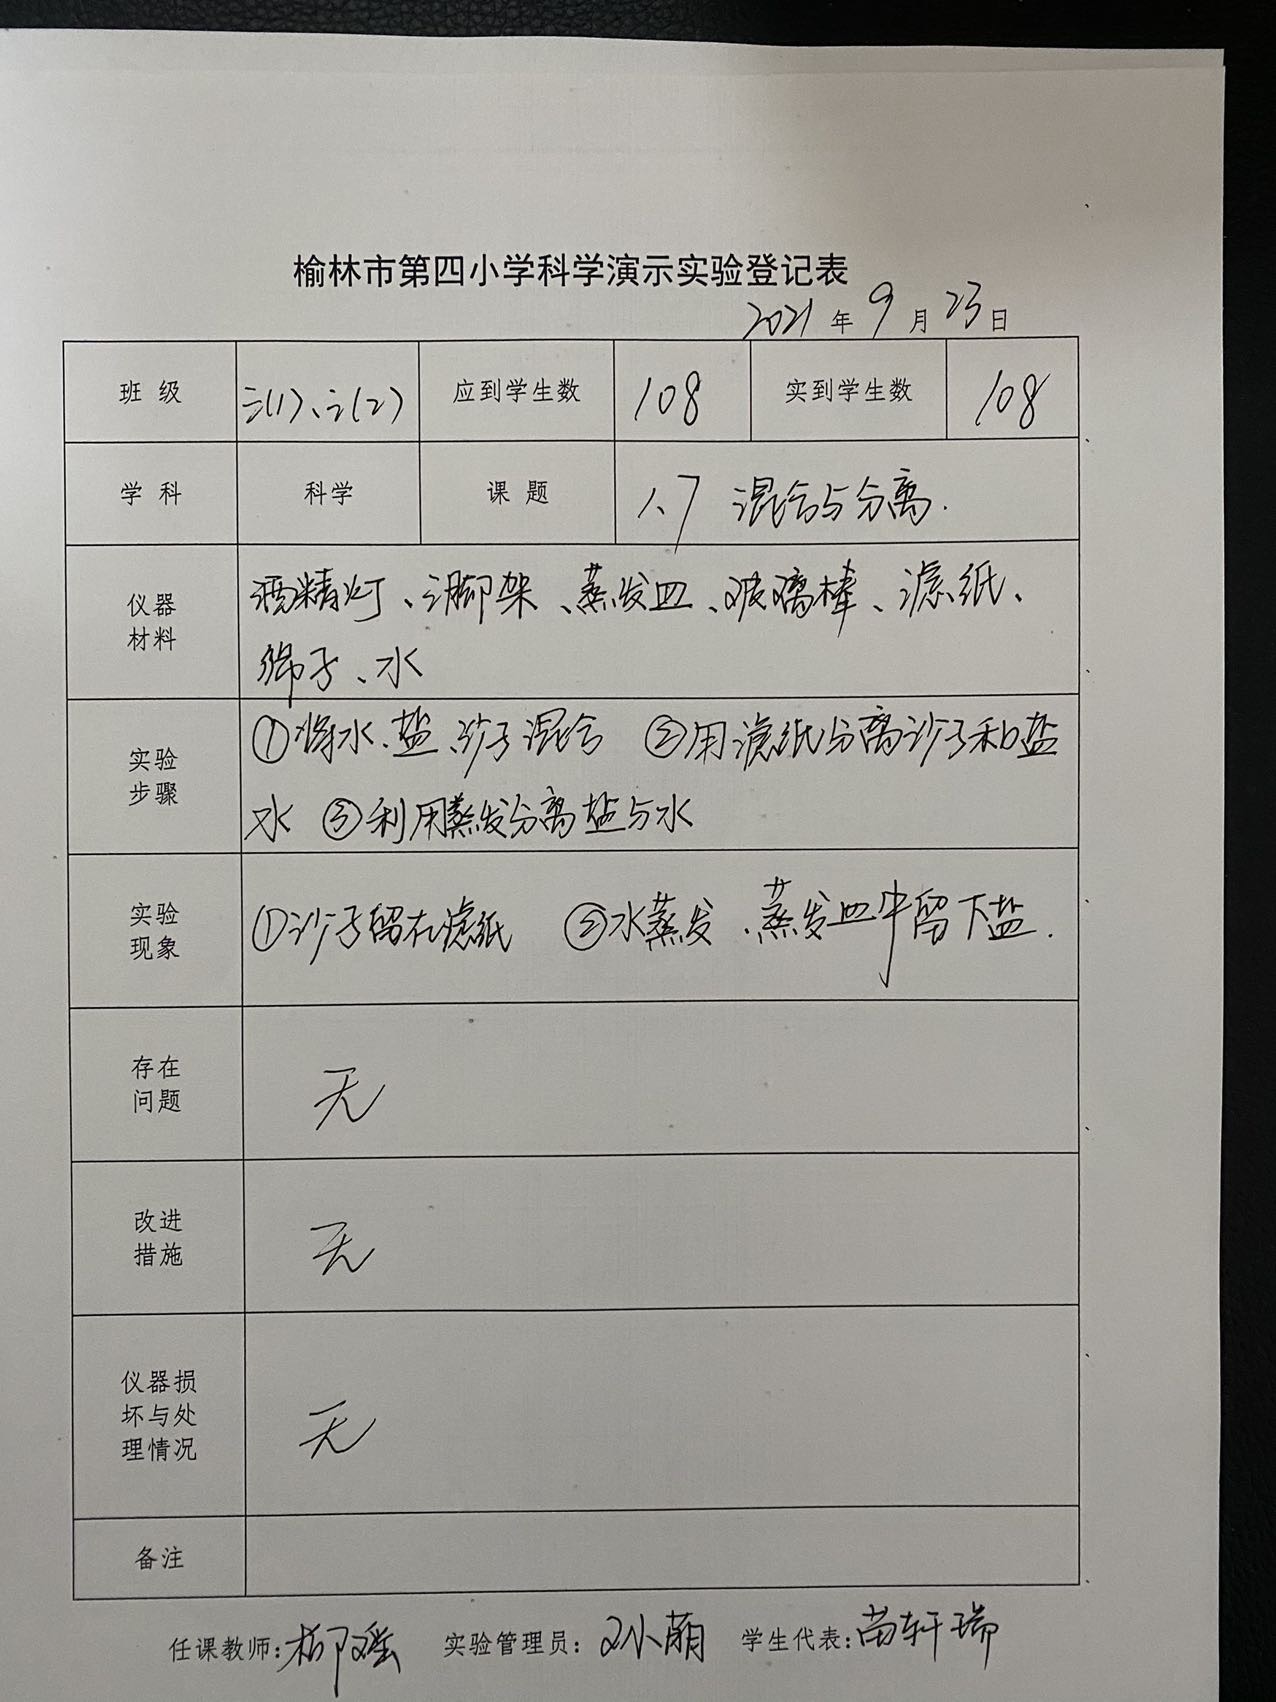 榆林市第四小学科学演示实验登记表
2021年9月23日
班 级 三(1)、三(2) 应到学生数 108 实到学生数 108
学 科 科学 课 题 1.7 混合与分离.
仪器
材料
酒精灯、三脚架、蒸发皿、玻璃棒、滤纸、
筛子、水
实验
步骤
①将水、盐、沙子混合 ②用滤纸分离沙子和盐
水 ③利用蒸发分离盐与水
实验
现象
①沙子留在滤纸 ②水蒸发、蒸发皿中留下盐.
存在
问题
无
改进
措施
无
仪器损
坏与处
理情况
无
备注
任课教师:柳瑶 实验管理员:刘小萌 学生代表:苗轩瑞